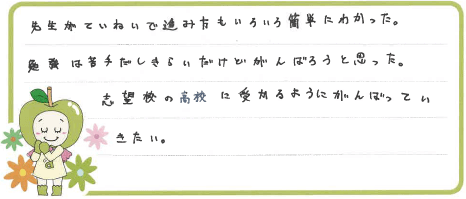 先生がていねいで進み方もいろいろ簡単にわかった。
勉強は苦手だしきらいだけどがんばろうと思った。
志望校の高校に受かるようにがんばってい
きたい。